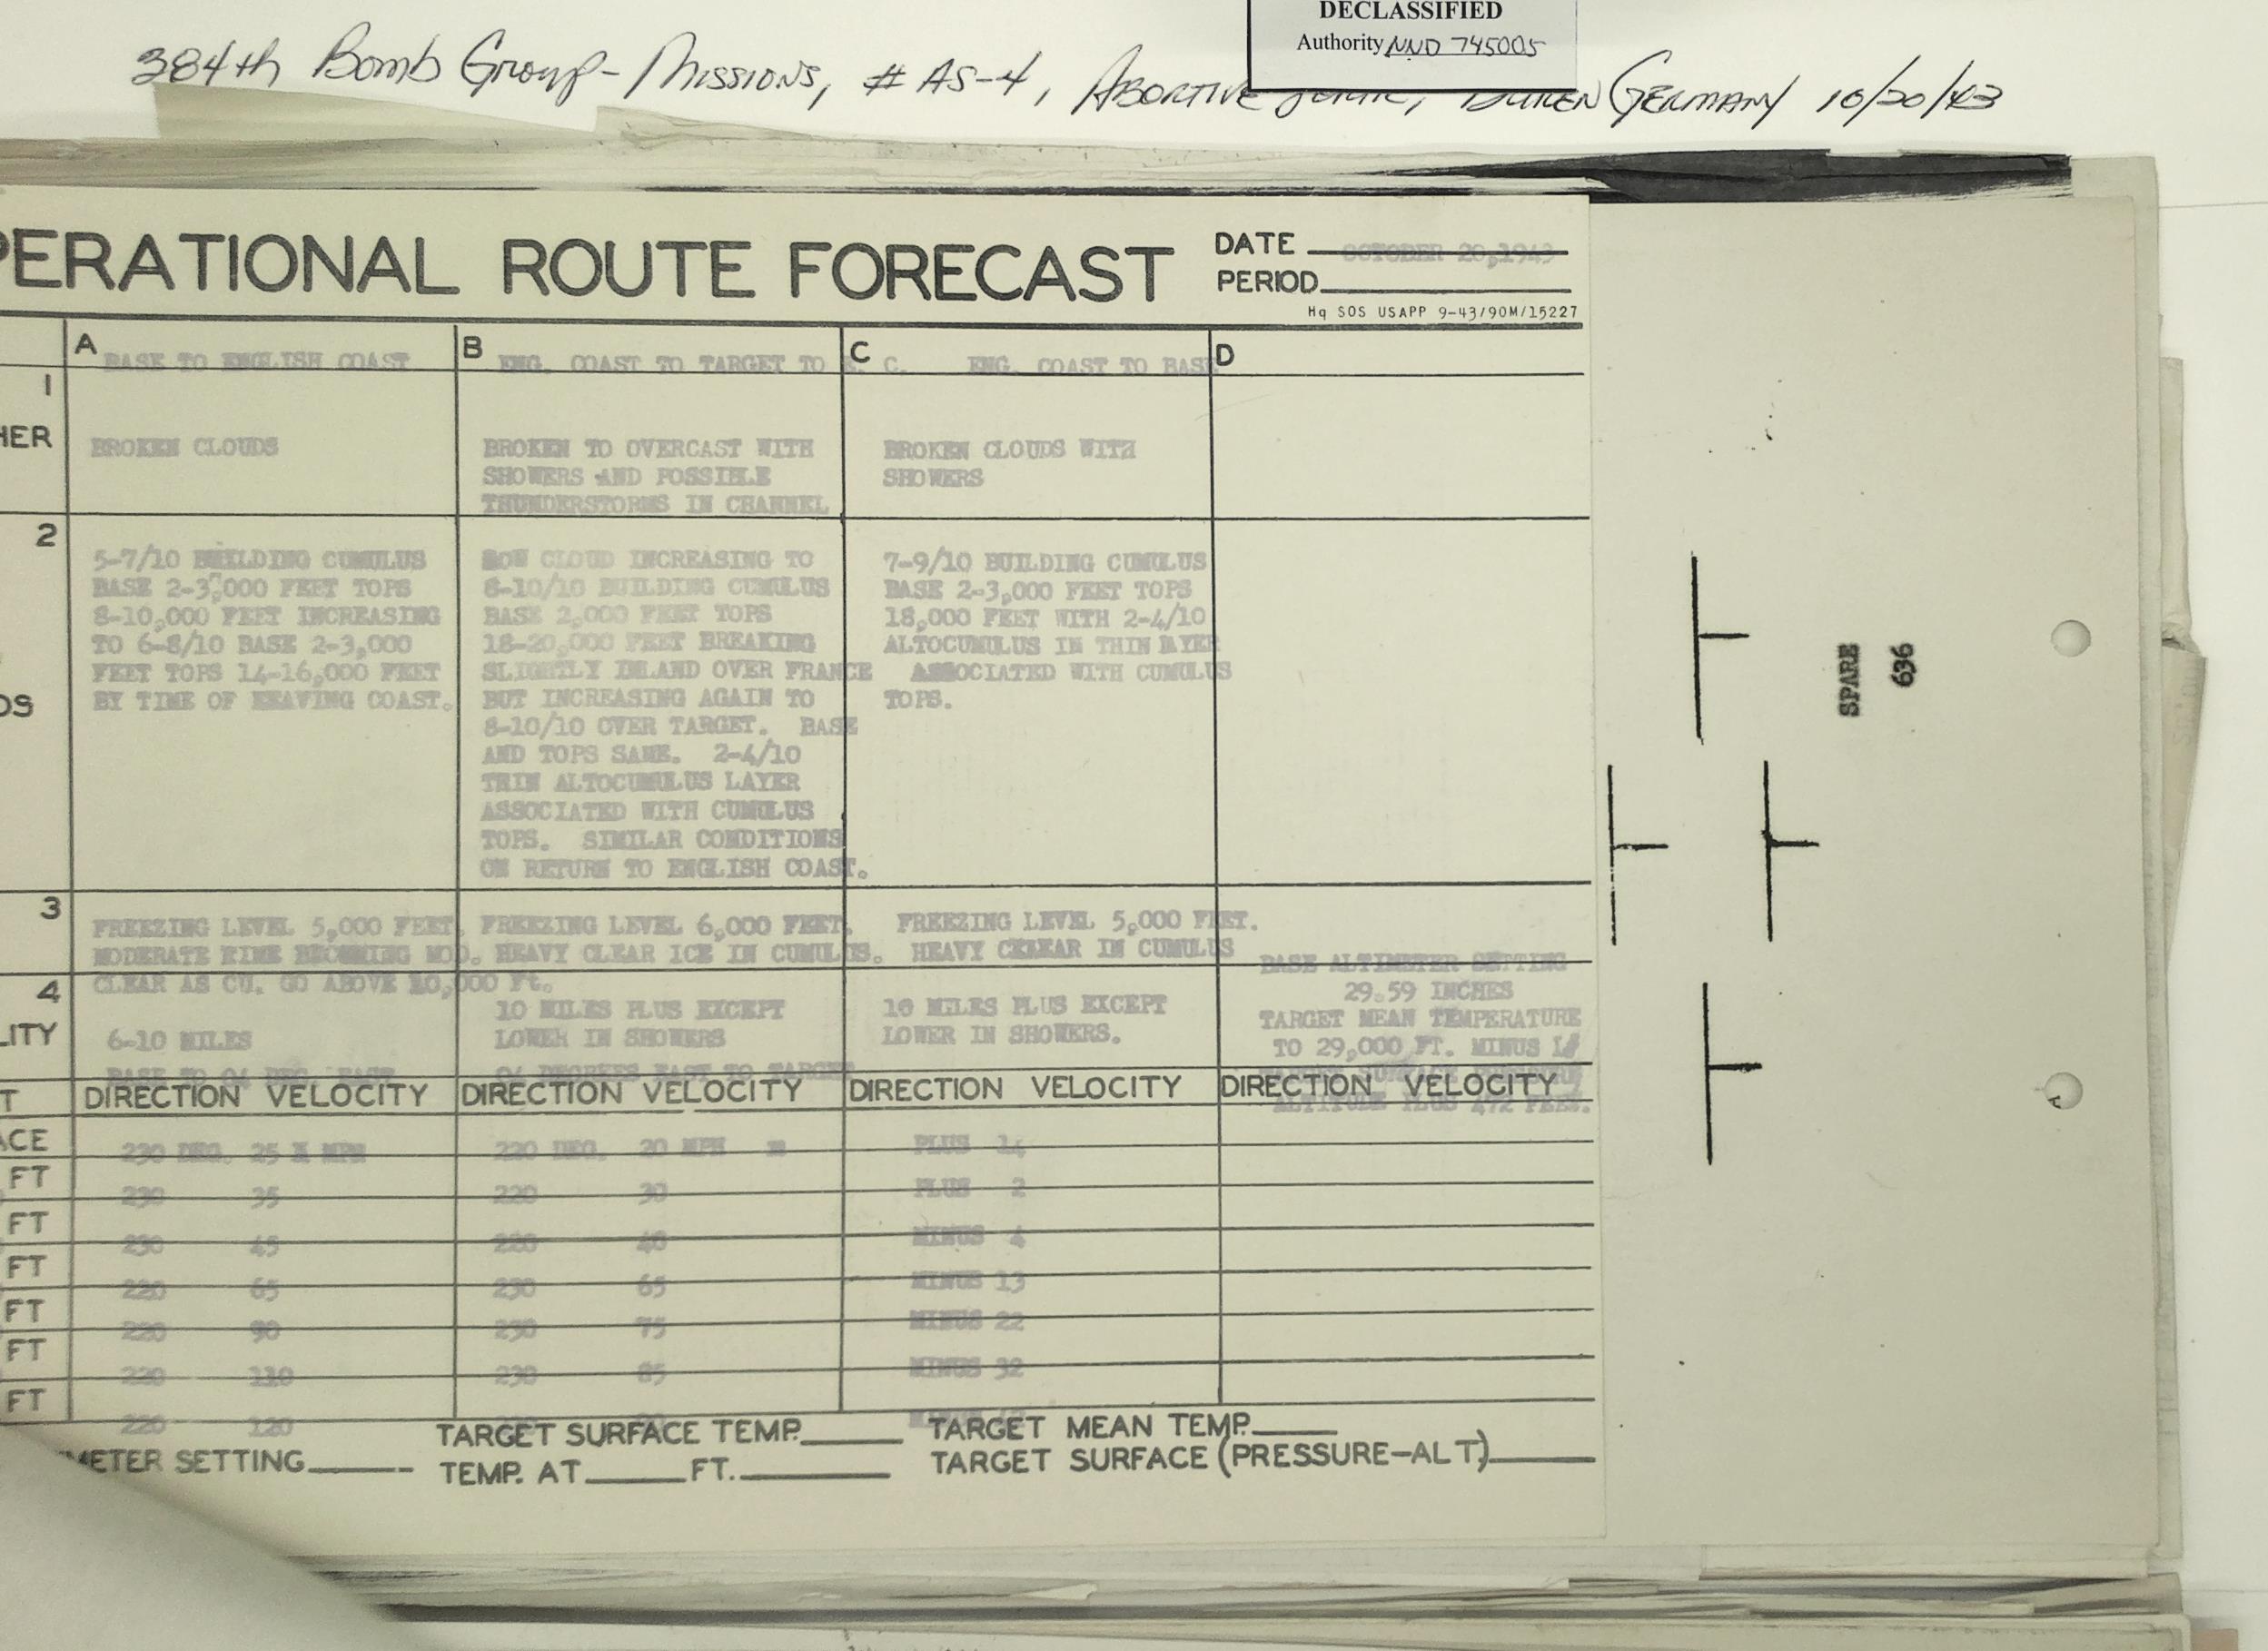 DECLASSIFIED
Authority NND 745005
384th Bomb Group - Missions, # AS-4, Abortive Germany 10/20/43
PERATIONAL ROUTE FORECAST
DATE OCTOBER 20,1943
PERIOD
Hq SOS USAPP 9-43/90M/15227
A BASE TO ENGLISH COAST
B ENG. COAST TO TARGET TO E. C.
C ENG. COAST TO BASE
D
1
HER
BROKEN CLOUDS
BROKEN TO OVERCAST WITH
SHOWERS AND POSSIBLE
THUNDERSTORMS IN CHANNEL
BROKEN CLOUDS WITH
SHOWERS
2
DS
5-7/10 BUILDING CUMULUS
BASE 2-3,000 FEET TOPS
8-10,000 FEET INCREASING
TO 6-8/10 BASE 2-3,000
FEET TOPS 14-16,000 FEET
BY TIME OF LEAVING COAST.
LOW CLOUD INCREASING TO
8-10/10 BUILDING CUMULUS
BASE 2,000 FEET TOPS
18-20,000 FEET BREAKING
SLIGHTLY INLAND OVER FRANCE
BUT INCREASING AGAIN TO
8-10/10 OVER TARGET. BASE
AND TOPS SAME. 2-4/10
THIN ALTOCUMULUS LAYER
ASSOCIATED WITH CUMULUS
TOPS. SIMILAR CONDITIONS
ON RETURN TO ENGLISH COAST.
7-9/10 BUILDING CUMULUS
BASE 2-3,000 FEET TOPS
18,000 FEET WITH 2-4/10
ALTOCUMULUS IN THIN LAYER
ASSOCIATED WITH CUMULUS
TOPS.
3
FREEZING LEVEL 5,000 FEET.
MODERATE RIME BECOMING MOD.
CLEAR AS CU. GO ABOVE 10,000 Ft.
FREEZING LEVEL 6,000 FEET.
HEAVY CLEAR ICE IN CUMULUS.
FREEZING LEVEL 5,000 FEET.
HEAVY CLEAR IN CUMULUS
4
LITY
6-10 MILES
10 MILES PLUS EXCEPT
LOWER IN SHOWERS
10 MILES PLUS EXCEPT
LOWER IN SHOWERS.
BASE ALTIMETER SETTING
29.59 INCHES
TARGET MEAN TEMPERATURE
TO 29,000 FT. MINUS
TARGET SURFACE PRESSURE
ALTITUDE PLUS 472 FEET.
BASE TO 04 DEG. EAST
04 DEGREES EAST TO TARGET
T DIRECTION VELOCITY DIRECTION VELOCITY DIRECTION VELOCITY DIRECTION VELOCITY
ACE 230 DEG. 25 MPH 220 DEG. 20 MPH PLUS 14
FT 230 35 220 30 PLUS 2
FT 230 45 220 40 MINUS 4
FT 220 65 230 65 MINUS 13
FT 220 90 230 75 MINUS 22
FT 220 110 230 85 MINUS 32
FT 220 120
METER SETTING
TARGET SURFACE TEMP.
TEMP. AT FT.
TARGET MEAN TEMP.
TARGET SURFACE (PRESSURE-ALT)
SPARE
636